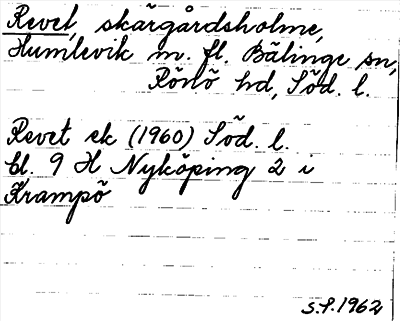 Revet, skärgårdsholme,
Humlevik m. fl. Bälinge sn,
Rönö hd, Söd. l.
Revet ek (1960) Söd. l.
bl. 9 H Nyköping 2 i
Krampö
S.P. 1962